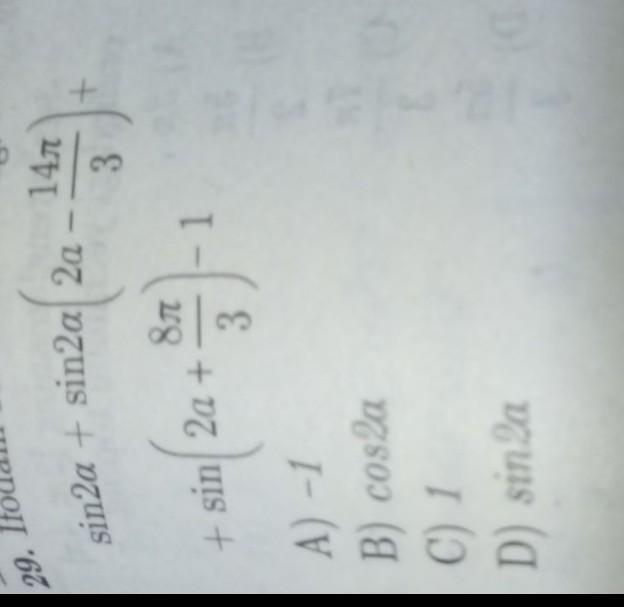 29.
sin2a + sin2a(2a − 14π/3) +
+ sin(2a + 8π/3) − 1
A) -1
B) cos2a
C) 1
D) sin2a